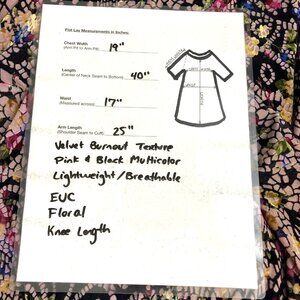 Flat Lay Measurements in Inches:
Chest Width 19"
(Arm Pit to Arm Pit)
Length 40"
(Center of Neck Seam to Bottom)
Waist 17"
(Measured across)
Arm Length 25"
(Shoulder Seam to Cuff)
Velvet Burnout Texture
Pink & Black Multicolor
Lightweight/Breathable
EUC
Floral
Knee Length